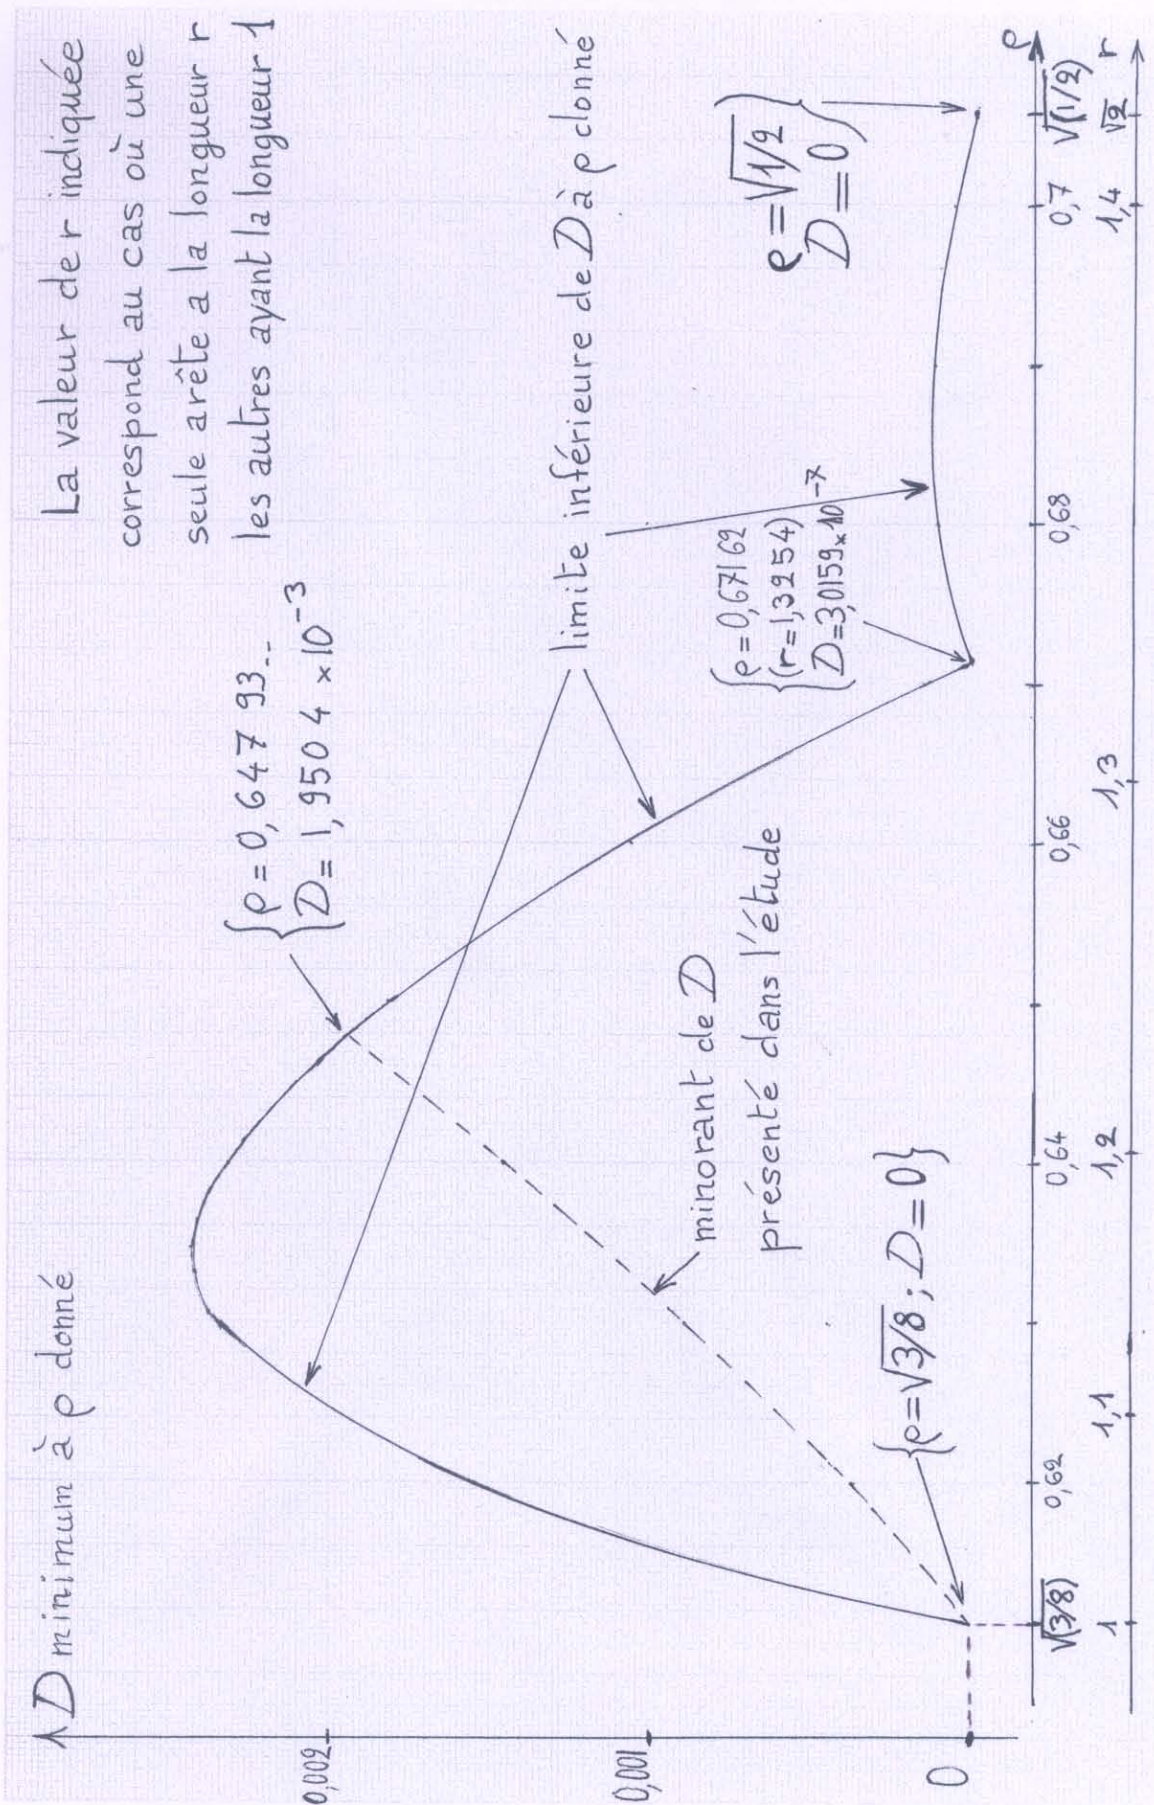 D minimum à ρ donné
La valeur de r indiquée
correspond au cas où une
seule arête a la longueur r
les autres ayant la longueur 1
{ρ = 0,647 93...
D = 1,950 4 × 10⁻³
limite inférieure de D à ρ donné
ρ = √1/2
D = 0}
{ρ = 0,67162
(r = 1,3254)
D = 3,0159 × 10⁻⁷
minorant de D
présenté dans l'étude
{ρ = √3/8 ; D = 0}
0,002
0,001
0
√(3/8) 0,62 0,64 0,66 0,68 0,7 √(1/2) ρ
1 1,1 1,2 1,3 1,4 √2 r